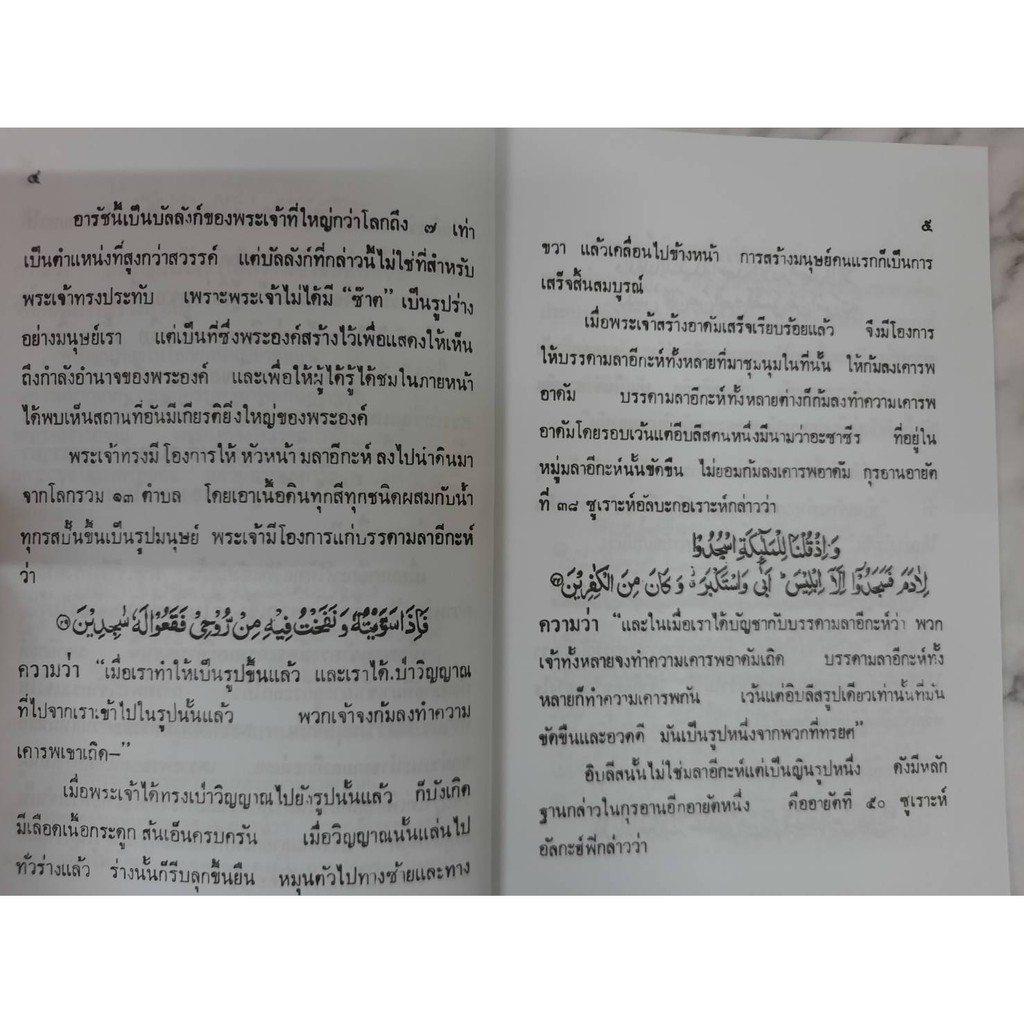 ๔
อารัชนี้เป็นบัลลังก์ของพระเจ้าที่ใหญ่กว่าโลกถึง ๗ เท่า
เป็นตำแหน่งที่สูงกว่าสวรรค์ แต่บัลลังก์ที่กล่าวนี้ไม่ใช่ที่สำหรับ
พระเจ้าทรงประทับ เพราะพระเจ้าไม่ได้มี “ซ๊าต” เป็นรูปร่าง
อย่างมนุษย์เรา แต่เป็นที่ซึ่งพระองค์สร้างไว้เพื่อแสดงให้เห็น
ถึงกำลังอำนาจของพระองค์ และเพื่อให้ผู้ได้รู้ได้ชมในภายหน้า
ได้พบเห็นสถานที่อันมีเกียรติยิ่งใหญ่ของพระองค์
พระเจ้าทรงมีโองการให้ หัวหน้า มลาอีกะห์ ลงไปนำดินมา
จากโลกรวม ๑๓ ตำบล โดยเอาเนื้อดินทุกสีทุกชนิดผสมกับน้ำ
ทุกรสปั้นขึ้นเป็นรูปมนุษย์ พระเจ้ามีโองการแก่บรรดามลาอีกะห์
ว่า
فَإِذَا سَوَّيْتُهُ وَنَفَخْتُ فِيْهِ مِنْ رُّوْحِيْ فَقَعُوْا لَهُ سٰجِدِيْنَ
ความว่า “เมื่อเราทำให้เป็นรูปขึ้นแล้ว และเราได้เป่าวิญญาณ
ที่ไปจากเราเข้าไปในรูปนั้นแล้ว พวกเจ้าจงก้มลงทำความ
เคารพเขาเถิด—”
เมื่อพระเจ้าได้ทรงเป่าวิญญาณไปยังรูปนั้นแล้ว ก็บังเกิด
มีเลือดเนื้อกระดูก สันเอ็นครบครัน เมื่อวิญญาณนั้นแล่นไป
ทั่วร่างแล้ว ร่างนั้นก็รีบลุกขึ้นยืน หมุนตัวไปทางซ้ายและทาง
๕
ขวา แล้วเคลื่อนไปข้างหน้า การสร้างมนุษย์คนแรกก็เป็นการ
เสร็จสิ้นสมบูรณ์
เมื่อพระเจ้าสร้างอาดัมเสร็จเรียบร้อยแล้ว จึงมีโองการ
ให้บรรดามลาอีกะห์ทั้งหลายที่มาชุมนุมในที่นั้น ให้ก้มลงเคารพ
อาดัม บรรดามลาอีกะห์ทั้งหลายต่างก็ก้มลงทำความเคารพ
อาดัมโดยรอบเว้นแต่อีบลีสตนหนึ่งมีนามว่าอะซาซีร ที่อยู่ใน
หมู่มลาอีกะห์นั้นขัดขืน ไม่ยอมก้มลงเคารพอาดัม กุรอานอายัต
ที่ ๓๘ ซูเราะห์อัลบะกอเราะห์กล่าวว่า
وَاِذْ قُلْنَا لِلْمَلٰٓئِكَةِ اسْجُدُوْا
لِاٰدَمَ فَسَجَدُوْٓا اِلَّآ اِبْلِيْسَ اَبٰى وَاسْتَكْبَرَ وَكَانَ مِنَ الْكٰفِرِيْنَ
ความว่า “และในเมื่อเราได้บัญชากับบรรดามลาอีกะห์ว่า พวก
เจ้าทั้งหลายจงทำความเคารพอาดัมเถิด บรรดามลาอีกะห์ทั้ง
หลายก็ทำความเคารพกัน เว้นแต่อิบลีสรูปเดียวเท่านั้นที่มัน
ขัดขืนและอวดดี มันเป็นรูปหนึ่งจากพวกที่ทรยศ”
อิบลีสนั้นไม่ใช่มลาอีกะห์แต่เป็นญินรูปหนึ่ง ดังมีหลัก
ฐานกล่าวในกุรอานอีกอายัตหนึ่ง คืออายัตที่ ๕๐ ซูเราะห์
อัลกะฮ์พีกล่าวว่า